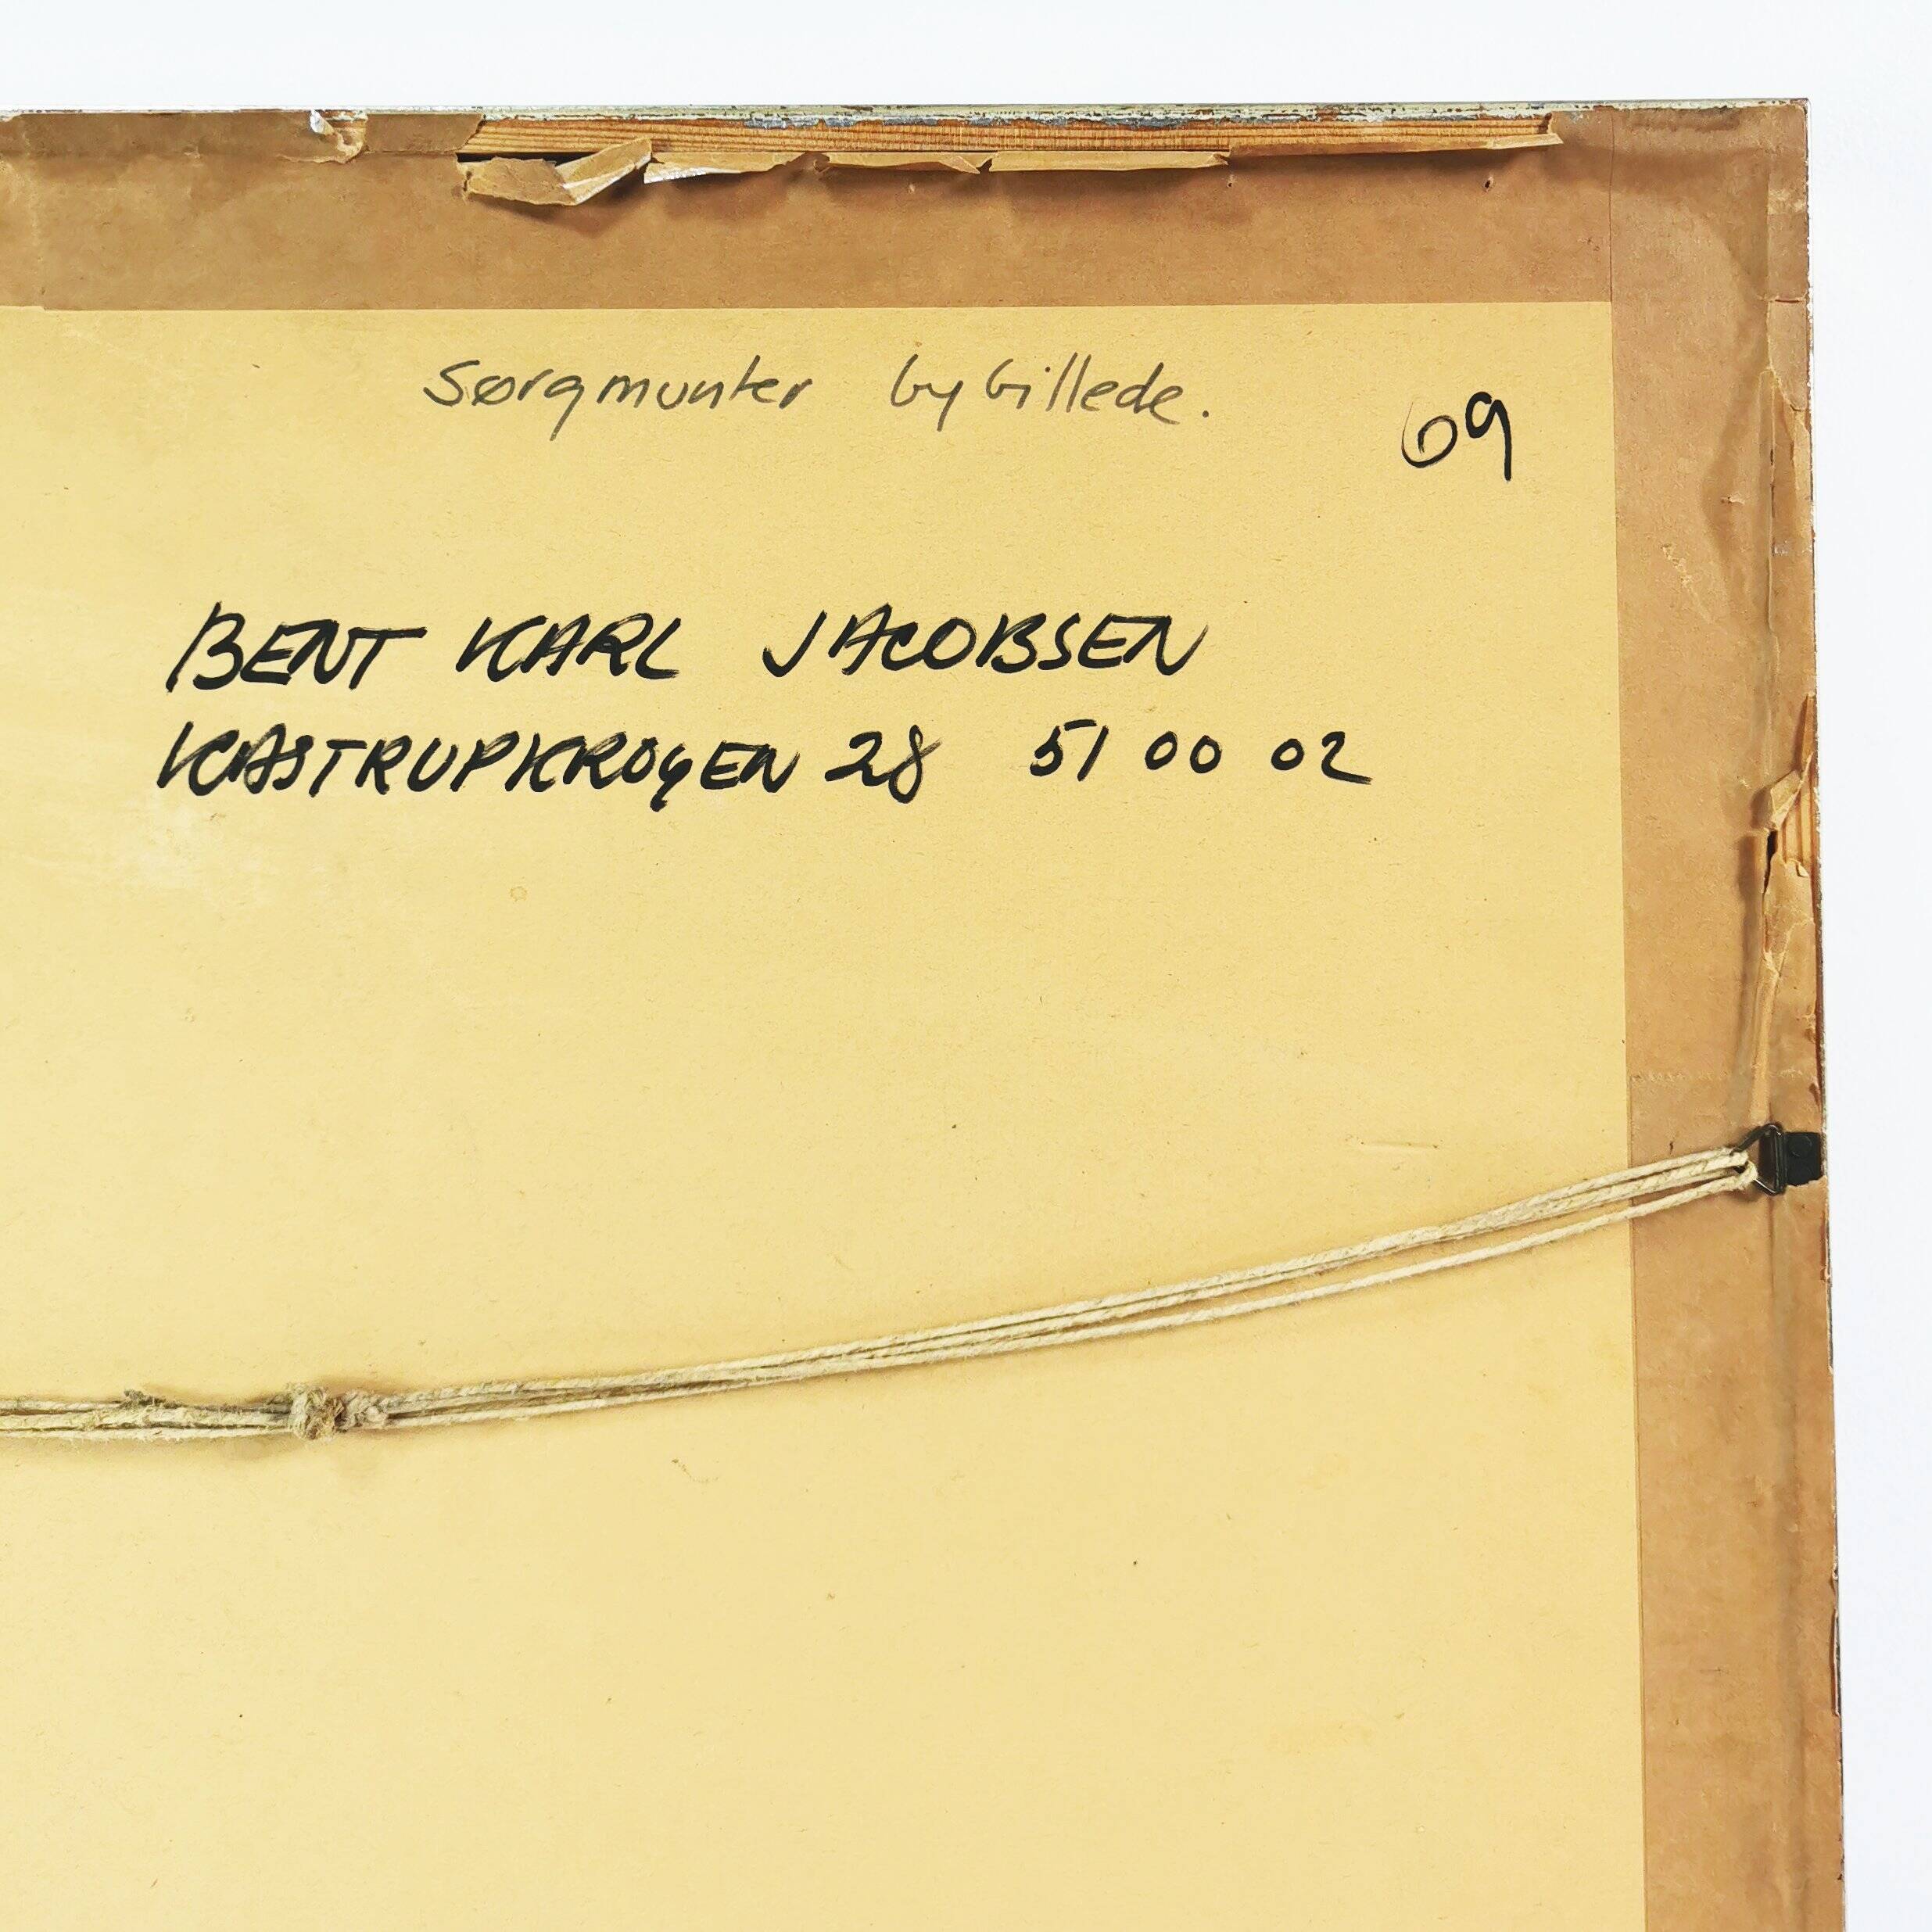 Sørgmunter bybillede.
69
BENT KARL JACOBSEN
KASTRUPKROGEN 28 51 00 02